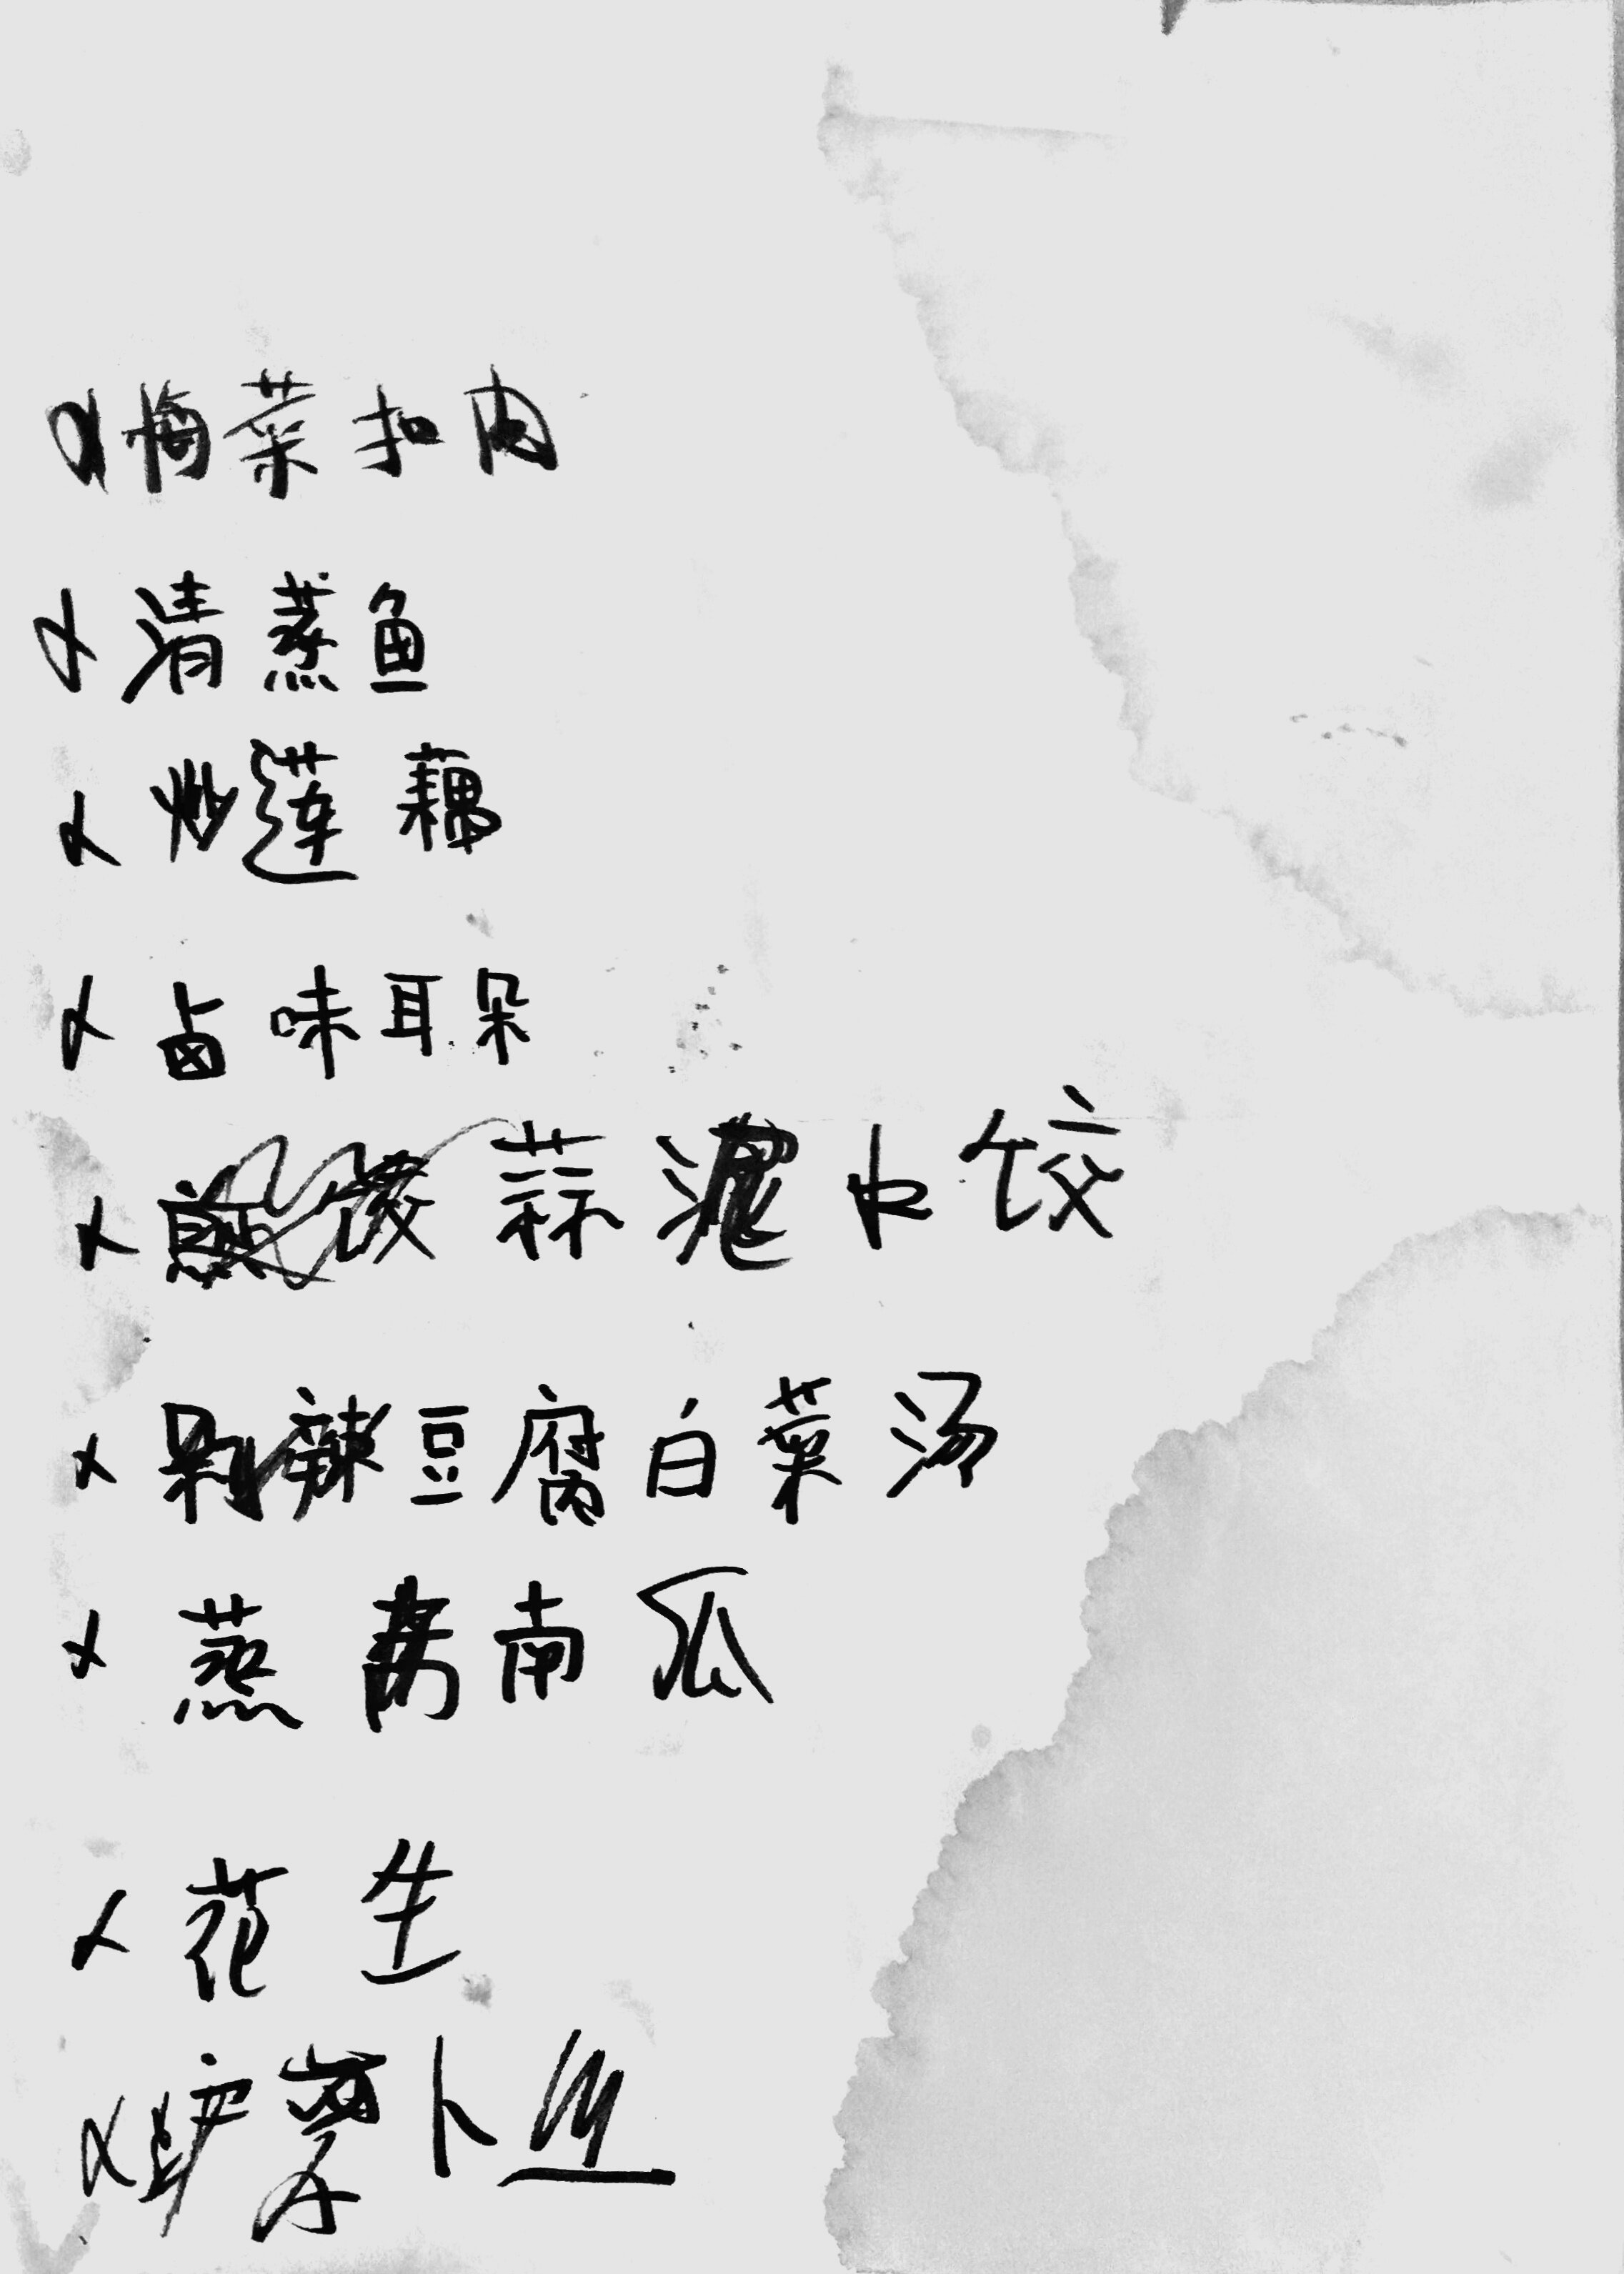 x 梅菜扣肉
x 清蒸鱼
x 炒莲藕
x 卤味耳朵
x 蒜泥水饺
x 剁辣豆腐白菜汤
x 蒸南瓜
x 花生
x 萝卜丝